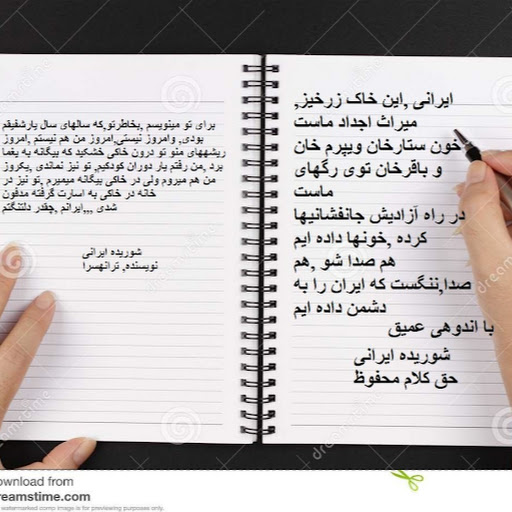 ایرانی ,این خاک زرخیز,
میراث اجداد ماست
خون ستارخان ویپرم خان
و باقرخان توی رگهای
ماست
در راه آزادیش جانفشانیها
کرده ,خونها داده ایم
هم صدا شو ,هم
صدا,ننگست که ایران را به
دشمن داده ایم
با اندوهی عمیق
شوریده ایرانی
حق کلام محفوظ
برای تو مینویسم ,بخاطرتو,که سالهای سال یارشفیقم
بودی, وامروز نیستی,امروز من هم نیستم ,امروز
ریشههای منو تو درون خاکی خشکید که بیگانه به یغما
برد ,من رفتم یار دوران کودکیم, تو نیز نماندی ,یکروز
من هم میروم ولی در خاکی بیگانه میمیرم ,تو نیز در
خانه در خاکی به اسارت گرفته مدفون
شدی ,,,ایرانم ,چقدر دلتنگتم
شوریده ایرانی
نویسنده, ترانهسرا
dreamstime
ownload from
reamstime.com
watermarked comp image is for previewing purposes only.